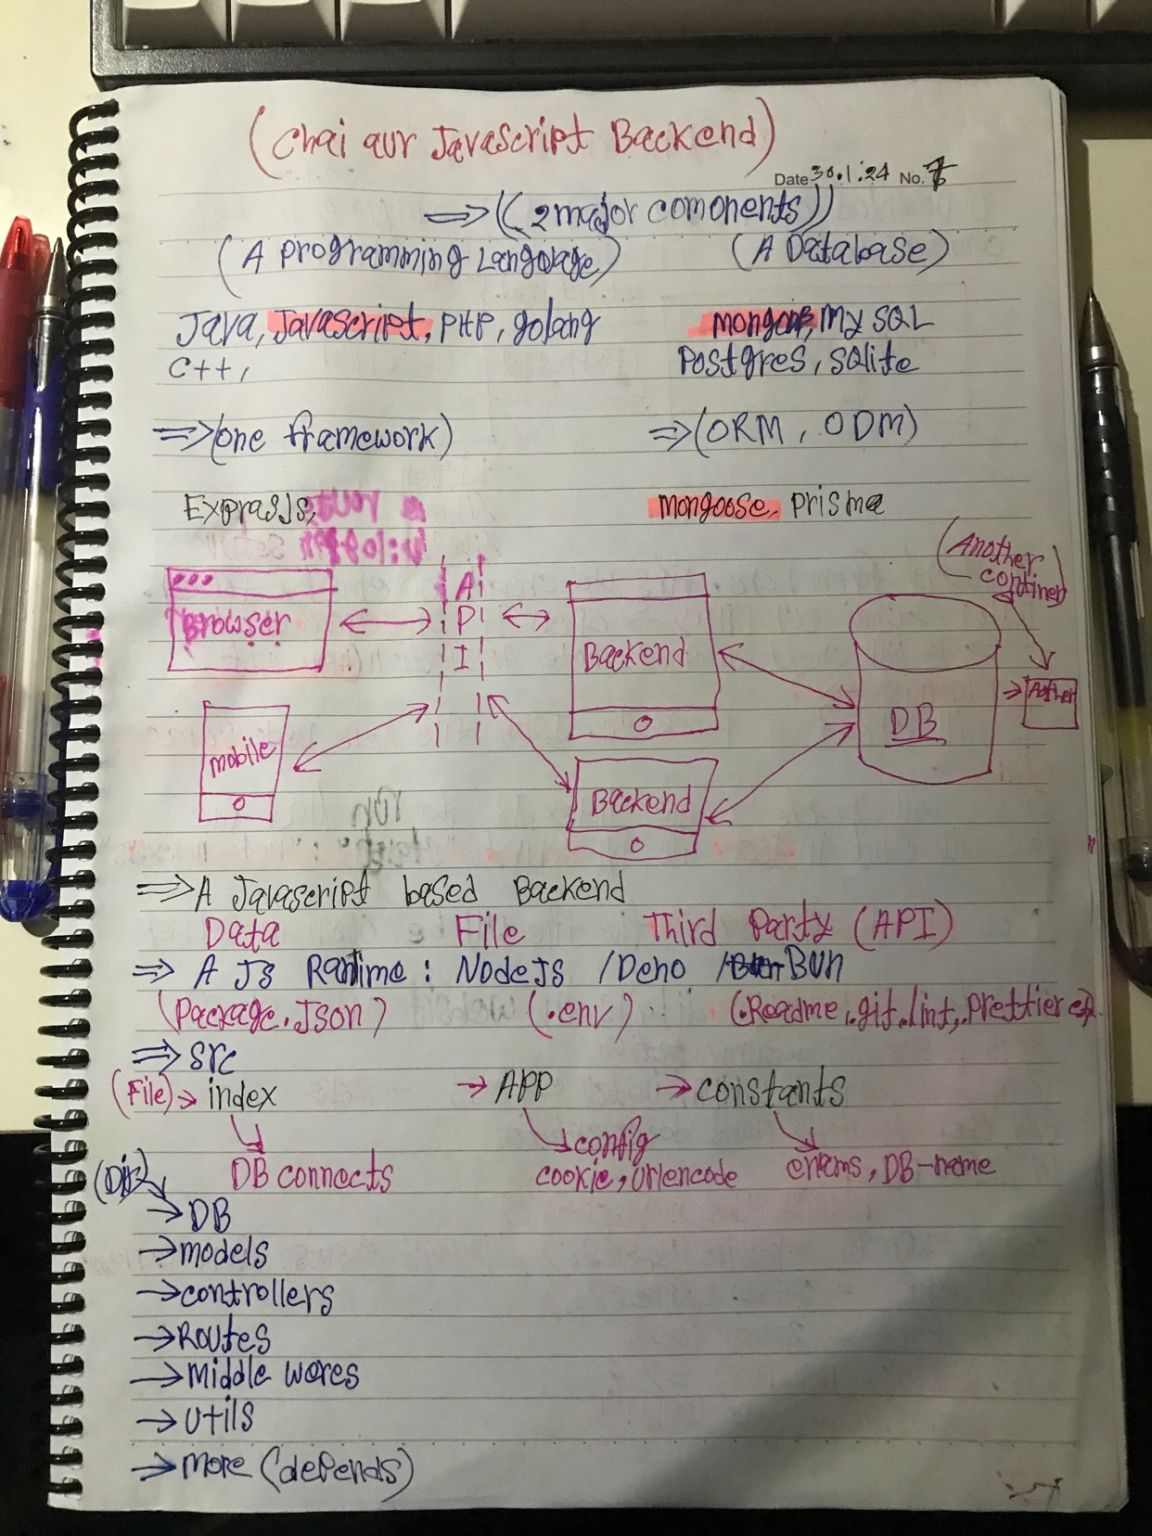 (Chai aur Javascript Backend)
Date 30.1.24 No.
=> ((2 major comonents))
(A programming Language) (A Database)
Java, Javascript, PHP, golang mongo, My SQL
C++, Postgres, sqlite
=> (one framework) => (ORM, ODM)
ExprasJs, mongoose, prisma
(Another continer)
Browser A P I Backend
DB
mobile
Backend
=> A Javascript based Backend
Data File Third Party (API)
=> A Js Runtime: NodeJs /Deno / Bun
(Package.Json) (.env) (Readme, .git, .lint, .Prettier
=> src
(File) -> index -> APP -> constants
config
DB connects cookie, urlencode enams, DB-name
(Dir)
-> DB
-> models
-> controllers
-> Routes
-> Middle wores
-> utils
-> more (depends)